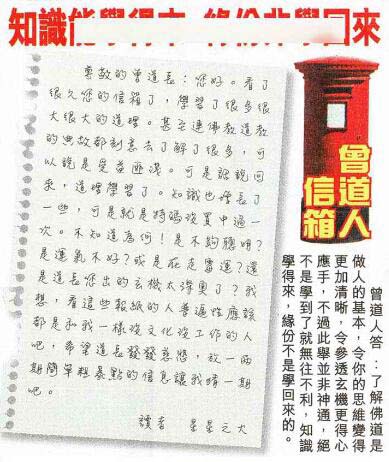 知識能學得來 緣份非學回來
尊敬的曾道長：您好。看了
很久您的信箱了，學習了很多很
大很大的道理。甚至連佛教道教
的典故都刻意去了解了很多，可
以說是受益匪淺。可是話說回
來，道理學習了。知識也增長了
一些，可是就是特碼沒買中過一
次。不知道為何！是不夠聰明？
是運氣不好？或是在走霉運？還
是道長您出的玄機太深奧了？我
想，看這些報紙的人普遍性應該
都是和我一樣沒文化沒工作的人
吧，希望道長發發慈悲，放一兩
期簡單粗暴點的信息讓我睛一期
吧。
讀者 星星之大
曾道人
信箱
曾道人答：了解佛道是
做人的基本，令你的思維變得
更加清晰，令參透玄機更得心
應手，不過此舉並非神通，絕
不是學到了就無往不利，知識
學得來，緣份不是學回來的。